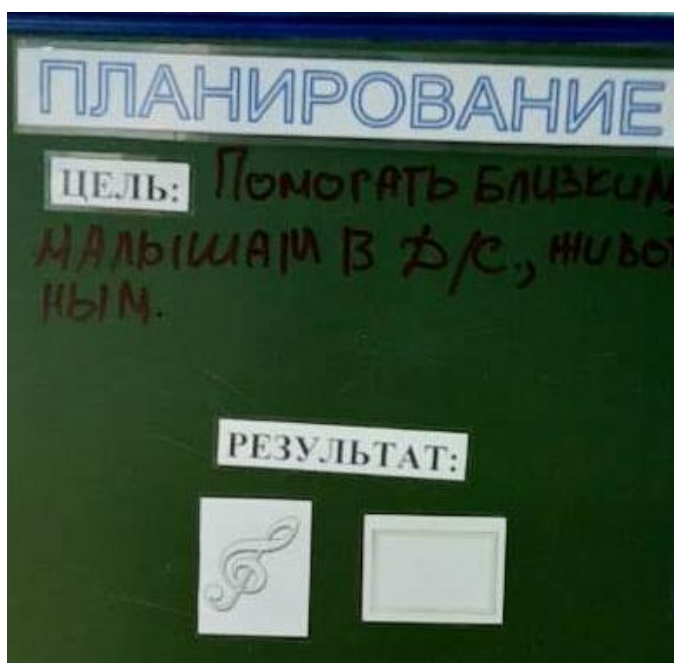 ПЛАНИРОВАНИЕ
ЦЕЛЬ: Помогать близким,
малышам в д/с., живот
ным.
РЕЗУЛЬТАТ: